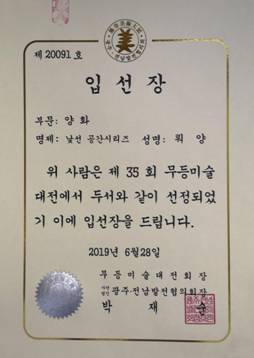 제 20091 호
입선장
부문: 양 화
명제: 낯선 공간시리즈 성명: 뭐 양
위 사람은 제 35 회 무등미술
대전에서 두서와 같이 선정되었
기 이에 입선장을 드립니다.
2019년 6월28일
무등미술대전회장
사단법인 광주·전남발전협의회장
박 재 순